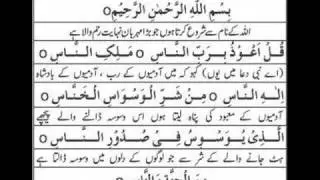 بِسْمِ اللّٰهِ الرَّحْمٰنِ الرَّحِيْمِ
اللہ کے نام سے شروع کرتا ہوں جو بڑا مہربان نہایت رحم والا ہے
قُلْ اَعُوْذُ بِرَبِّ النَّاسِ ○ مَلِكِ النَّاسِ ○
(اے نبی دعا میں یوں) کہو کہ میں آدمیوں کے رب ، آدمیوں کے بادشاہ
اِلٰهِ النَّاسِ ○ مِنْ شَرِّ الْوَسْوَاسِ الْخَنَّاسِ ○
آدمیوں کے معبود کی پناہ لیتا ہوں اس وسوسہ ڈالنے والے پیچھے
الَّذِيْ يُوَسْوِسُ فِيْ صُدُوْرِ النَّاسِ ○
ہٹ جانے والے کے شر سے جو لوگوں کے دلوں میں وسوسہ ڈالتا ہے